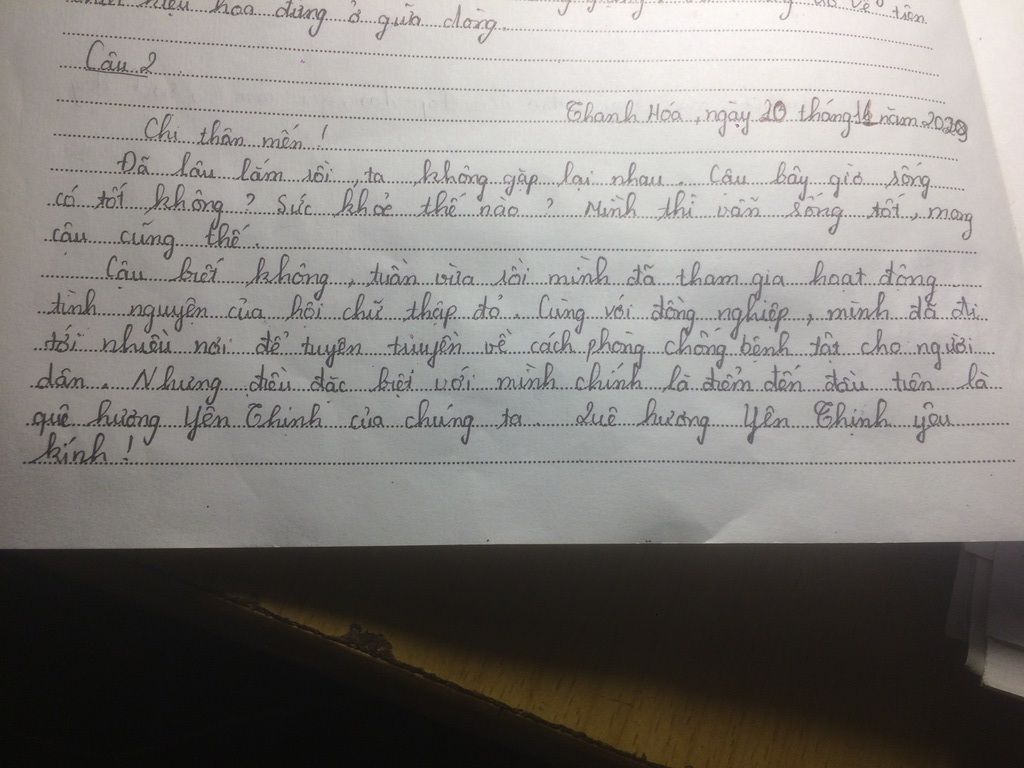 hiệu hoa đứng ở giữa dòng.
Câu 2
Thanh Hóa, ngày 20 tháng 11 năm 2020
Chi thân mến!
Đã lâu lắm rồi, ta không gặp lại nhau. Cậu bây giờ sống
có tốt không? Sức khoẻ thế nào? Mình thì vẫn sống tốt, mong
cậu cũng thế.
Cậu biết không, tuần vừa rồi mình đã tham gia hoạt động
tình nguyện của hội chữ thập đỏ. Cùng với đồng nghiệp, mình đã đi
tới nhiều nơi để tuyên truyền về cách phòng chống bệnh tật cho người
dân. Nhưng điều đặc biệt với mình chính là điểm đến đầu tiên là
quê hương Yên Thịnh của chúng ta. Quê hương Yên Thịnh yêu
kính!